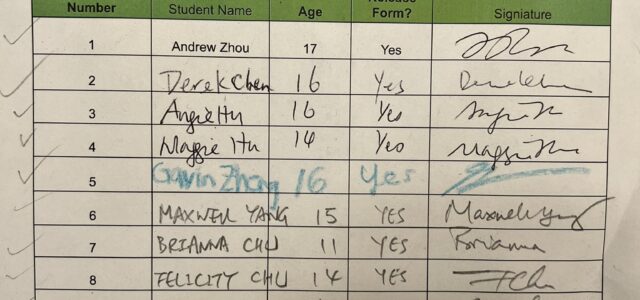 Number Student Name Age Release Form? Signiature
1 Andrew Zhou 17 Yes
2 Derek Chen 16 Yes Derek Chen
3 Angie Hu 16 Yes Angie Hu
4 Maggie Hu 14 Yes Maggie Hu
5 Gavin Zhang 16 Yes
6 MAXWELL YANG 15 YES Maxwell Yang
7 BRIANNA CHU 11 YES Brianna
8 FELICITY CHU 14 YES FChu